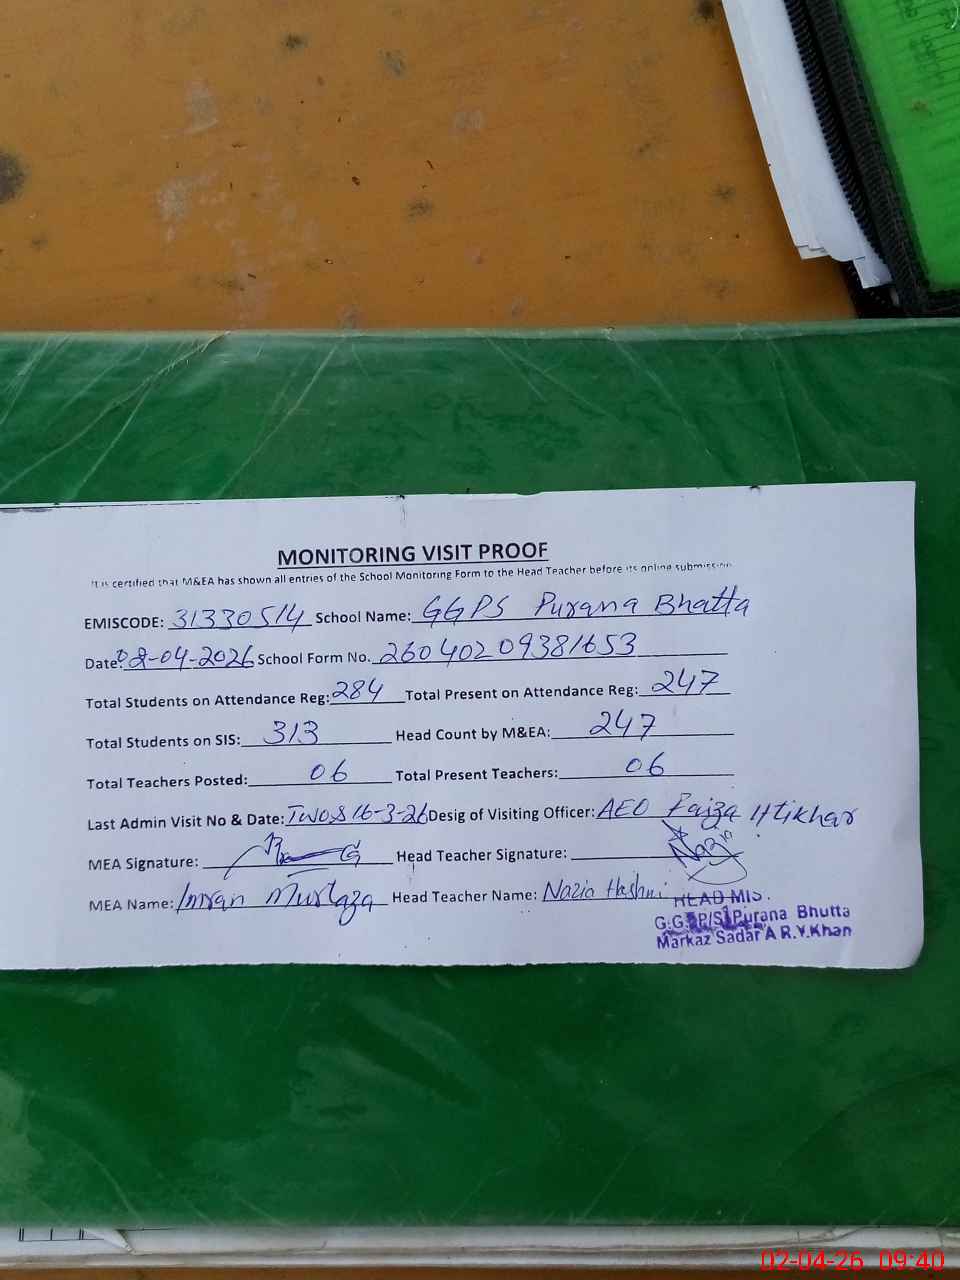 MONITORING VISIT PROOF
It is certified that M&EA has shown all entries of the School Monitoring Form to the Head Teacher before its online submission
EMISCODE: 31330514 School Name: GGPS Purana Bhatta
Date: 02-04-2026 School Form No. 26040209381653
Total Students on Attendance Reg: 284 Total Present on Attendance Reg: 247
Total Students on SIS: 313 Head Count by M&EA: 247
Total Teachers Posted: 06 Total Present Teachers: 06
Last Admin Visit No & Date: Two& 16-3-26 Desig of Visiting Officer: AEO Faiza Iftikhar
MEA Signature: Head Teacher Signature: Nazia
MEA Name: Imran Murtaza Head Teacher Name: Nazia Hashmi
HEAD MIS.
G.G.P/S Purana Bhutta
Markaz Sadar A R.Y.Khan
02-04-26 09:40